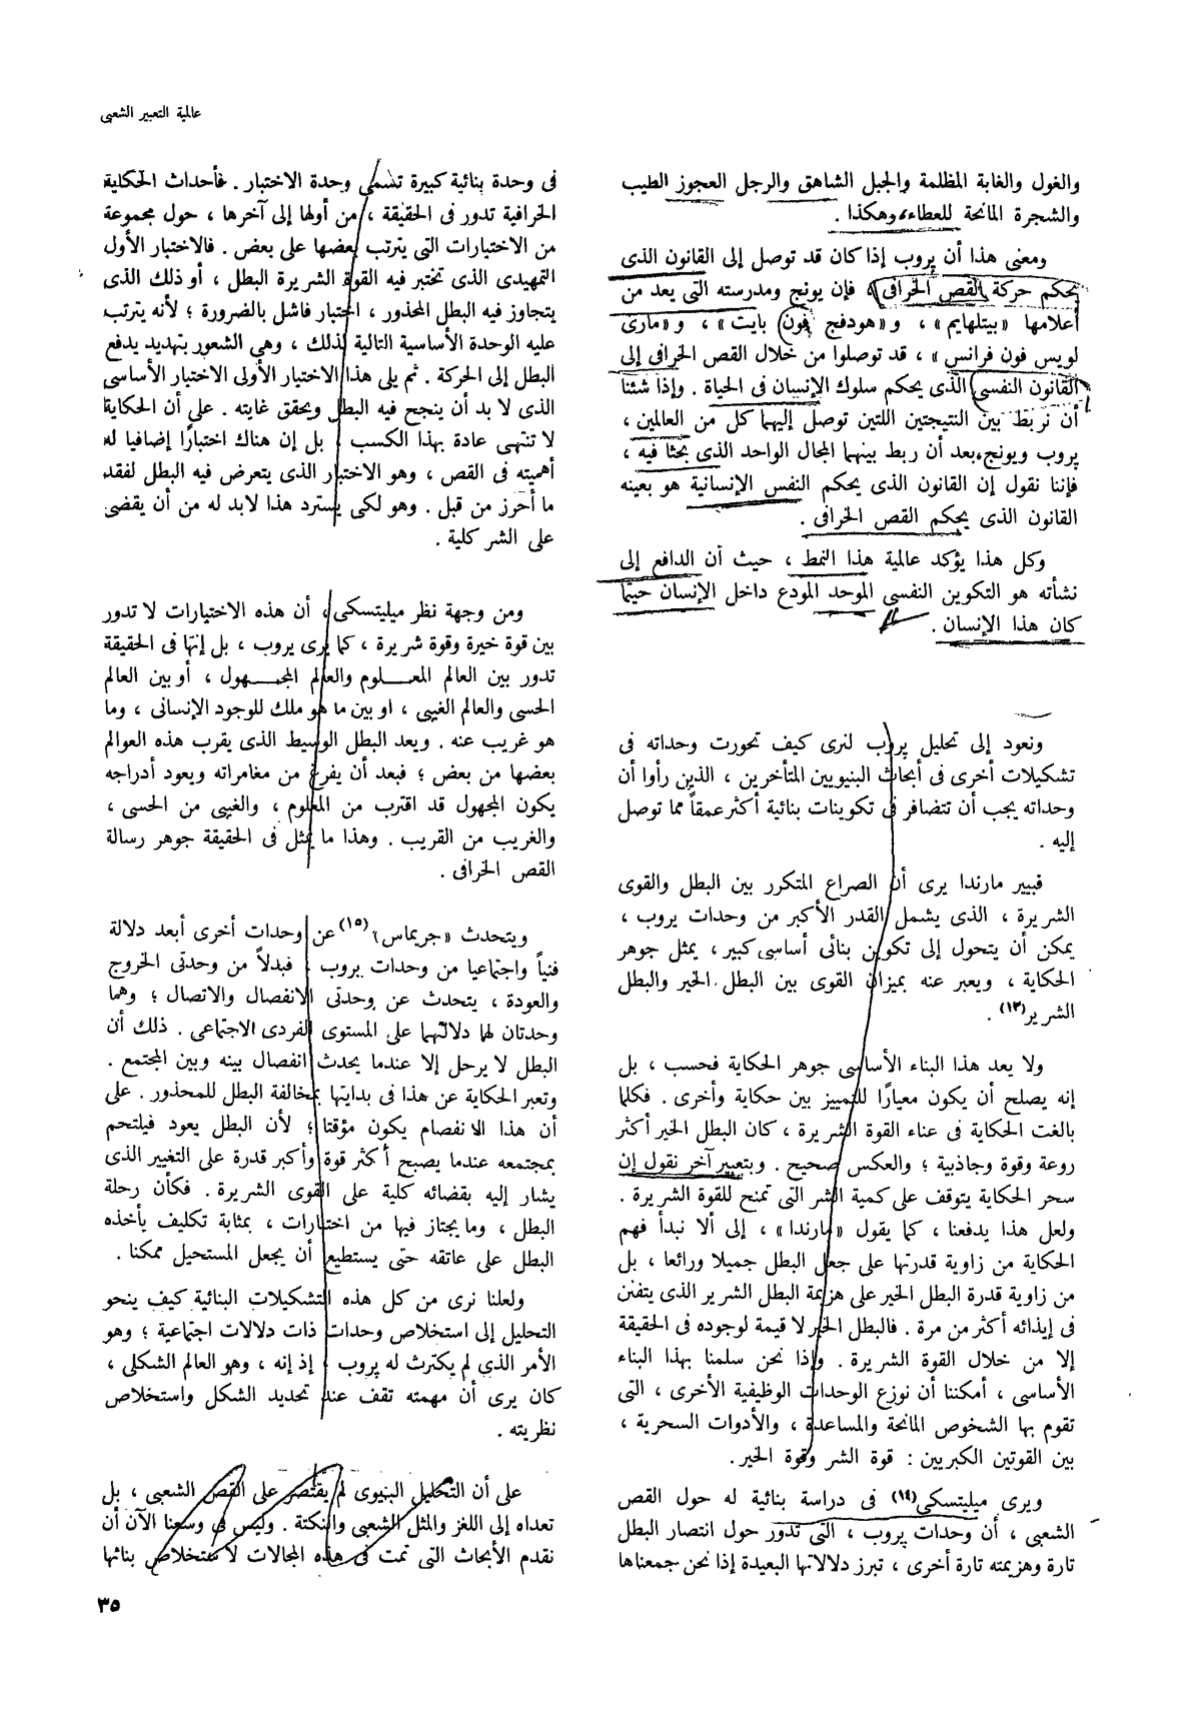 عالمية التعبير الشعبى
والغول والغابة المظلمة والجبل الشاهق والرجل العجوز الطيب
والشجرة المانحة للعطاء، وهكذا .
ومعنى هذا أن پروب إذا كان قد توصل إلى القانون الذى
يحكم حركة القص الخرافى ، فإن يونج ومدرسته التى يعد من
أعلامها «بيتلهايم» ، و«هودفج فون بايت» ، و«مارى
لويس فون فرانس» ، قد توصلوا من خلال القص الخرافى إلى
القانون النفسى الذى يحكم سلوك الإنسان فى الحياة . وإذا شئنا
أن نربط بين النتيجتين اللتين توصل إليهما كل من العالمين ،
پروب ويونج، بعد أن ربط بينهما المجال الواحد الذى بحثا فيه ،
فإننا نقول إن القانون الذى يحكم النفس الإنسانية هو بعينه
القانون الذى يحكم القص الخرافى .
وكل هذا يؤكد عالمية هذا النمط ، حيث أن الدافع إلى
نشأته هو التكوين النفسى الموحد المودع داخل الإنسان حيثما
كان هذا الإنسان .
ونعود إلى تحليل پروب لنرى كيف تحورت وحداته فى
تشكيلات أخرى فى أبحاث البنيويين المتأخرين ، الذين رأوا أن
وحداته يجب أن تتضافر فى تكوينات بنائية أكثر عمقاً مما توصل
إليه .
فبيير مارندا يرى أن الصراع المتكرر بين البطل والقوى
الشريرة ، الذى يشمل القدر الأكبر من وحدات پروب ،
يمكن أن يتحول إلى تكوين بنائى أساسى كبير ، يمثل جوهر
الحكاية ، ويعبر عنه بميزان القوى بين البطل الخير والبطل
الشرير(١٣) .
ولا يعد هذا البناء الأساسى جوهر الحكاية فحسب ، بل
إنه يصلح أن يكون معيارًا للتمييز بين حكاية وأخرى . فكلما
بالغت الحكاية فى عناء القوة الشريرة ، كان البطل الخير أكثر
روعة وقوة وجاذبية ؛ والعكس صحيح . وبتعبير آخر نقول إن
سحر الحكاية يتوقف على كمية الشر التى تمنح للقوة الشريرة .
ولعل هذا يدفعنا ، كما يقول «مارندا» ، إلى ألا نبدأ فهم
الحكاية من زاوية قدرتها على جعل البطل جميلا ورائعا ، بل
من زاوية قدرة البطل الخير على هزيمة البطل الشرير الذى يتفنن
فى إيذائه أكثر من مرة . فالبطل الخير لا قيمة لوجوده فى الحقيقة
إلا من خلال القوة الشريرة . وإذا نحن سلمنا بهذا البناء
الأساسى ، أمكننا أن نوزع الوحدات الوظيفية الأخرى ، التى
تقوم بها الشخوص المانحة والمساعدة ، والأدوات السحرية ،
بين القوتين الكبريين : قوة الشر وقوة الخير .
ويرى ميليتسكى(١٤) فى دراسة بنائية له حول القص
الشعبى ، أن وحدات پروب ، التى تدور حول انتصار البطل
تارة وهزيمته تارة أخرى ، تبرز دلالاتها البعيدة إذا نحن جمعناها
فى وحدة بنائية كبيرة تسمى وحدة الاختبار . فأحداث الحكاية
الخرافية تدور فى الحقيقة ، من أولها إلى آخرها ، حول مجموعة
من الاختبارات التى يترتب بعضها على بعض . فالاختبار الأول
التمهيدى الذى تختبر فيه القوة الشريرة البطل ، أو ذلك الذى
يتجاوز فيه البطل المحذور ، اختبار فاشل بالضرورة ؛ لأنه يترتب
عليه الوحدة الأساسية التالية لذلك ، وهى الشعور بتهديد يدفع
البطل إلى الحركة . ثم يلى هذا الاختبار الأولى الاختبار الأساسى
الذى لا بد أن ينجح فيه البطل ويحقق غايته . على أن الحكاية
لا تنتهى عادة بهذا الكسب ، بل إن هناك اختبارًا إضافيا له
أهميته فى القص ، وهو الاختبار الذى يتعرض فيه البطل لفقد
ما أحرز من قبل . وهو لكى يسترد هذا لابد له من أن يقضى
على الشر كلية .
ومن وجهة نظر ميليتسكى ، أن هذه الاختبارات لا تدور
بين قوة خيرة وقوة شريرة ، كما يرى پروب ، بل إنها فى الحقيقة
تدور بين العالم المعـلوم والعالم المجـهول ، أو بين العالم
الحسى والعالم الغيبى ، او بين ما هو ملك للوجود الإنسانى ، وما
هو غريب عنه . ويعد البطل الوسيط الذى يقرب هذه العوالم
بعضها من بعض ؛ فبعد أن يفرغ من مغامراته ويعود أدراجه
يكون المجهول قد اقترب من المعلوم ، والغيبى من الحسى ،
والغريب من القريب . وهذا ما يمثل فى الحقيقة جوهر رسالة
القص الخرافى .
ويتحدث «جريماس»(١٥) عن وحدات أخرى أبعد دلالة
فنياً واجتماعيا من وحدات پروب ، فبدلاً من وحدتى الخروج
والعودة ، يتحدث عن وحدتى الانفصال والاتصال ؛ وهما
وحدتان لها دلالتهما على المستوى الفردى الاجتماعى . ذلك أن
البطل لا يرحل إلا عندما يحدث انفصال بينه وبين المجتمع .
وتعبر الحكاية عن هذا فى بدايتها بمخالفة البطل للمحذور . على
أن هذا الانفصام يكون مؤقتا ؛ لأن البطل يعود فيلتحم
بمجتمعه عندما يصبح أكثر قوة وأكبر قدرة على التغيير الذى
يشار إليه بقضائه كلية على القوى الشريرة . فكأن رحلة
البطل ، وما يجتاز فيها من اختبارات ، بمثابة تكليف يأخذه
البطل على عاتقه حتى يستطيع أن يجعل المستحيل ممكنا .
ولعلنا نرى من كل هذه التشكيلات البنائية كيف ينحو
التحليل إلى استخلاص وحدات ذات دلالات اجتماعية ؛ وهو
الأمر الذى لم يكترث له پروب ، إذ إنه ، وهو العالم الشكلى ،
كان يرى أن مهمته تقف عند تحديد الشكل واستخلاص
نظريته .
على أن التحليل البنيوى لم يقتصر على القص الشعبى ، بل
تعداه إلى اللغز والمثل الشعبى والنكتة . وليس فى وسعنا الآن أن
نقدم الأبحاث التى تمت فى هذه المجالات لاستخلاص بنائها
٣٥